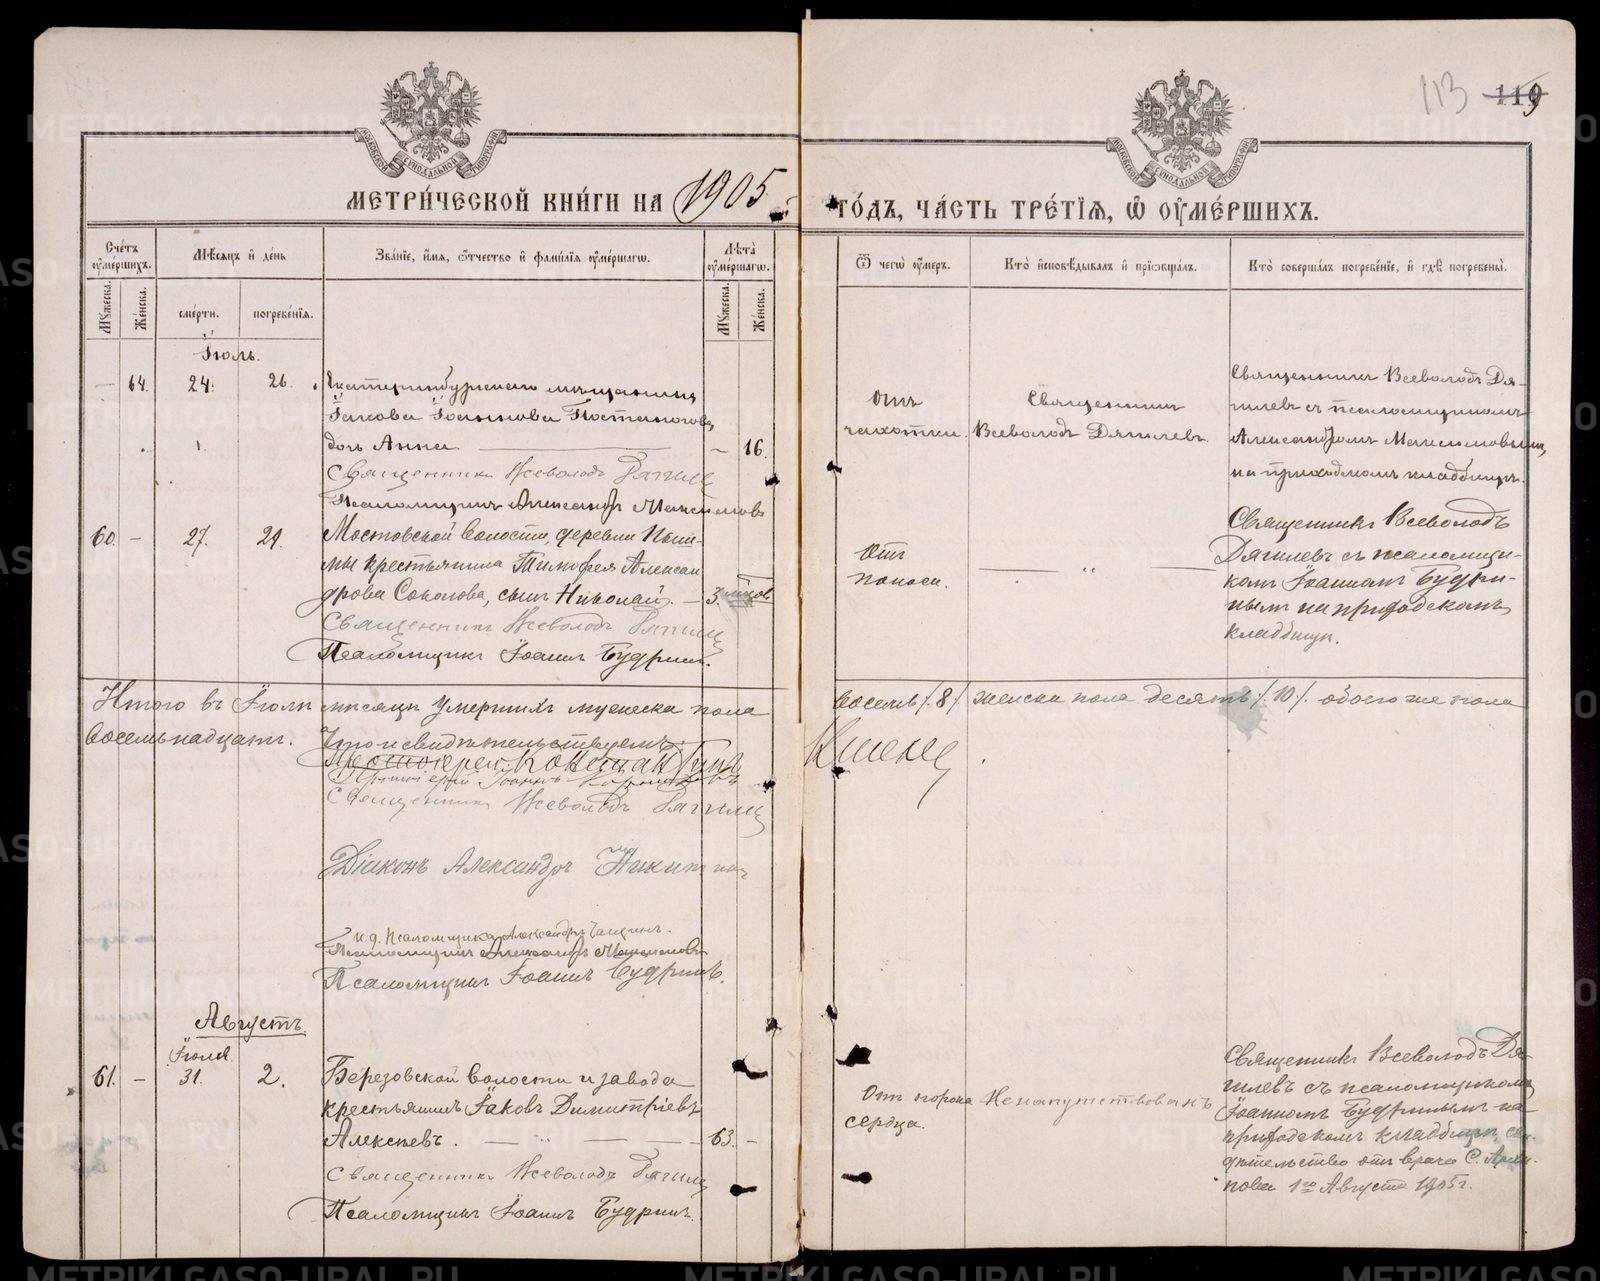 113 119
МЕТРИ́ЧЕСКОЙ КНИ́ГИ НА 1905
ГО́ДЪ, ЧА́СТЬ ТРЕ́ТІѦ, Ѿ ОУМЕ́РШИХЪ.
Сче́тъ оуме́ршихъ.
Мѣсяцъ и де́нь
Зва́ніе, и́мя, ѻ́тчество и фами́лія оуме́ршагѡ.
Лѣта̀ оуме́ршагѡ.
Ѿ чегѡ̀ оу́меръ.
Кто̀ исповѣ́дывалъ и прїѡбща́лъ.
Кто̀ соверша́лъ погребе́нїе, и гдѣ̀ погребены̀.
Му́жеска.
Же́нска.
сме́рти.
погребе́нія.
Му́жеска.
Же́нска.
Іюль.
— 64. 24. 26.
Екатеринбургскаго мѣщанина
Іакова Іоаннова Постаногова,
дочь Анна. — 16.
Священникъ Всеволодъ Дягилевъ
Псаломщикъ Александръ Максимовъ
Отъ
чахотки.
Священникъ
Всеволодъ Дягилевъ.
Священникъ Всеволодъ Дя-
гилевъ съ псаломщикомъ
Александромъ Максимовымъ,
на приходскомъ кладбищѣ.
60. — 27. 29.
Мостовской волости, деревни Пыш-
мы крестьянина Тимофея Алексан
дрова Соколова, сынъ Николай. — 3.
Священникъ Всеволодъ Дягилевъ
Псаломщикъ Іоаннъ Будринъ.
Отъ
поноса.
— „ —
Священникъ Всеволодъ
Дягилевъ съ псаломщи-
комъ Іоанномъ Будри-
нымъ на приходскомъ
кладбищѣ.
Итого въ Іюлѣ мѣсяцѣ умершихъ мужеска пола
восемь /8/ женска пола десять /10/ обоего же пола
восемьнадцать. Что и свидѣтельствуемъ:
Священникъ Всеволодъ Дягилевъ
Діаконъ Александръ Никитинъ
и. д. Псаломщика Александръ
Псаломщикъ Александръ Максимовъ
Псаломщикъ Іоаннъ Будринъ.
Августъ.
Іюля
61. — 31. 2.
Березовской волости и завода
крестьянинъ Іаковъ Димитріевъ
Алексѣевъ. — „ — — 63. —
Священникъ Всеволодъ Дягилевъ
Псаломщикъ Іоаннъ Будринъ.
Отъ порока
сердца.
Ненапутствованъ
Священникъ Всеволодъ Дя-
гилевъ съ псаломщикомъ
Іоанномъ Будринымъ на
приходскомъ кладбищѣ. сви-
дѣтельство отъ врача С. Архи-
пова 1го Августа 1905 г.